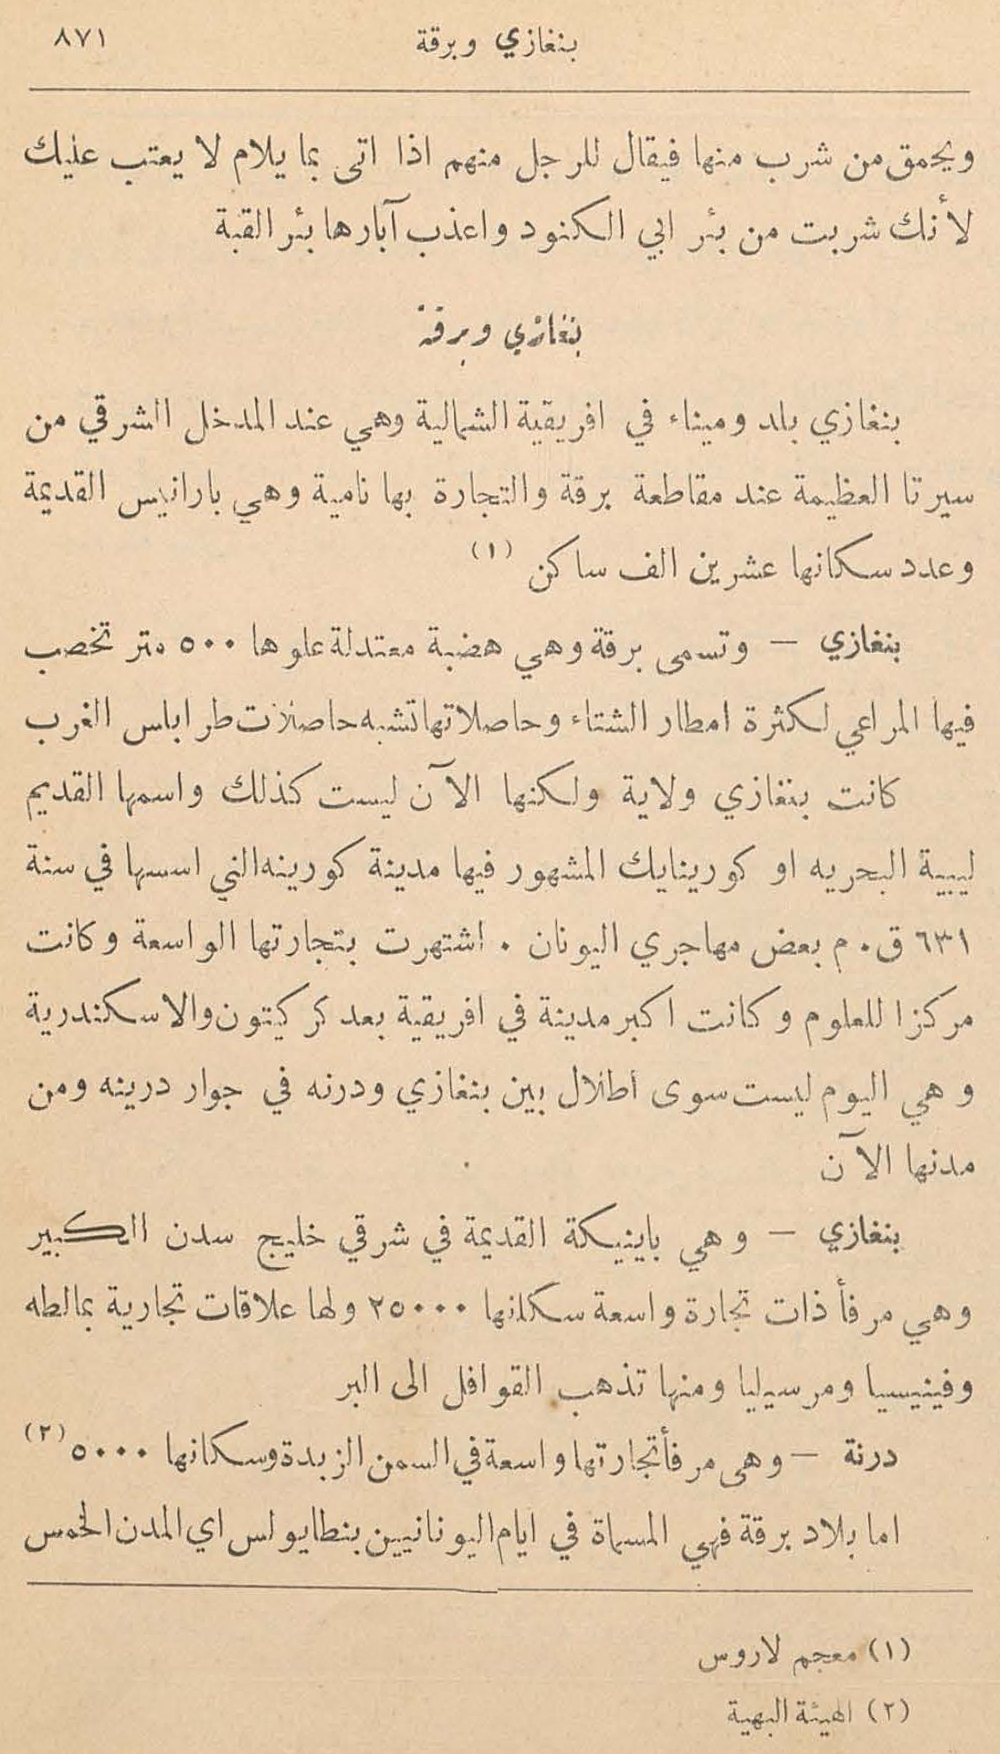 بنغازي وبرقة ٨٧١
ويحمق من شرب منها فيقال للرجل منهم اذا اتى بما يلام لا يعتب عليك
لأنك شربت من بئر ابي الكنود واعذب آبارها بئر القبة
بنغازي وبرقة
بنغازي بلد وميناء في افريقية الشمالية وهي عند المدخل الشرقي من
سيرتا العظيمة عند مقاطعة برقة والتجارة بها نامية وهي بارانيس القديمة
وعدد سكانها عشرين الف ساكن (١)
بنغازي — وتسمى برقة وهي هضبة معتدلة علوها ٥٠٠ متر تخصب
فيها المراعي لكثرة امطار الشتاء وحاصلاتها تشبه حاصلات طرابلس الغرب
كانت بنغازي ولاية ولكنها الآن ليست كذلك واسمها القديم
ليبية البحريه او كورينايك المشهور فيها مدينة كورينه التي اسسها في سنة
٦٣١ ق. م بعض مهاجري اليونان . اشتهرت بتجارتها الواسعة وكانت
مركزا للعلوم وكانت اكبر مدينة في افريقية بعد كركيتون والاسكندرية
وهي اليوم ليست سوى اطلال بين بنغازي ودرنه في جوار درينه ومن
مدنها الآن
بنغازي — وهي باينيكة القديمة في شرقي خليج سدن الكبير
وهي مرفأ ذات تجارة واسعة سكانها ٢٥٠٠٠ ولها علاقات تجارية بمالطه
وفينيسيا ومرسيليا ومنها تذهب القوافل الى البر
درنة — وهي مرفأ تجارتها واسعة في السمن الزبدة وسكانها ٥٠٠٠ (٢)
اما بلاد برقة فهي المسماة في ايام اليونانيين بنطابولس اي المدن الخمس
(١) معجم لاروس
(٢) الهيئة البهية